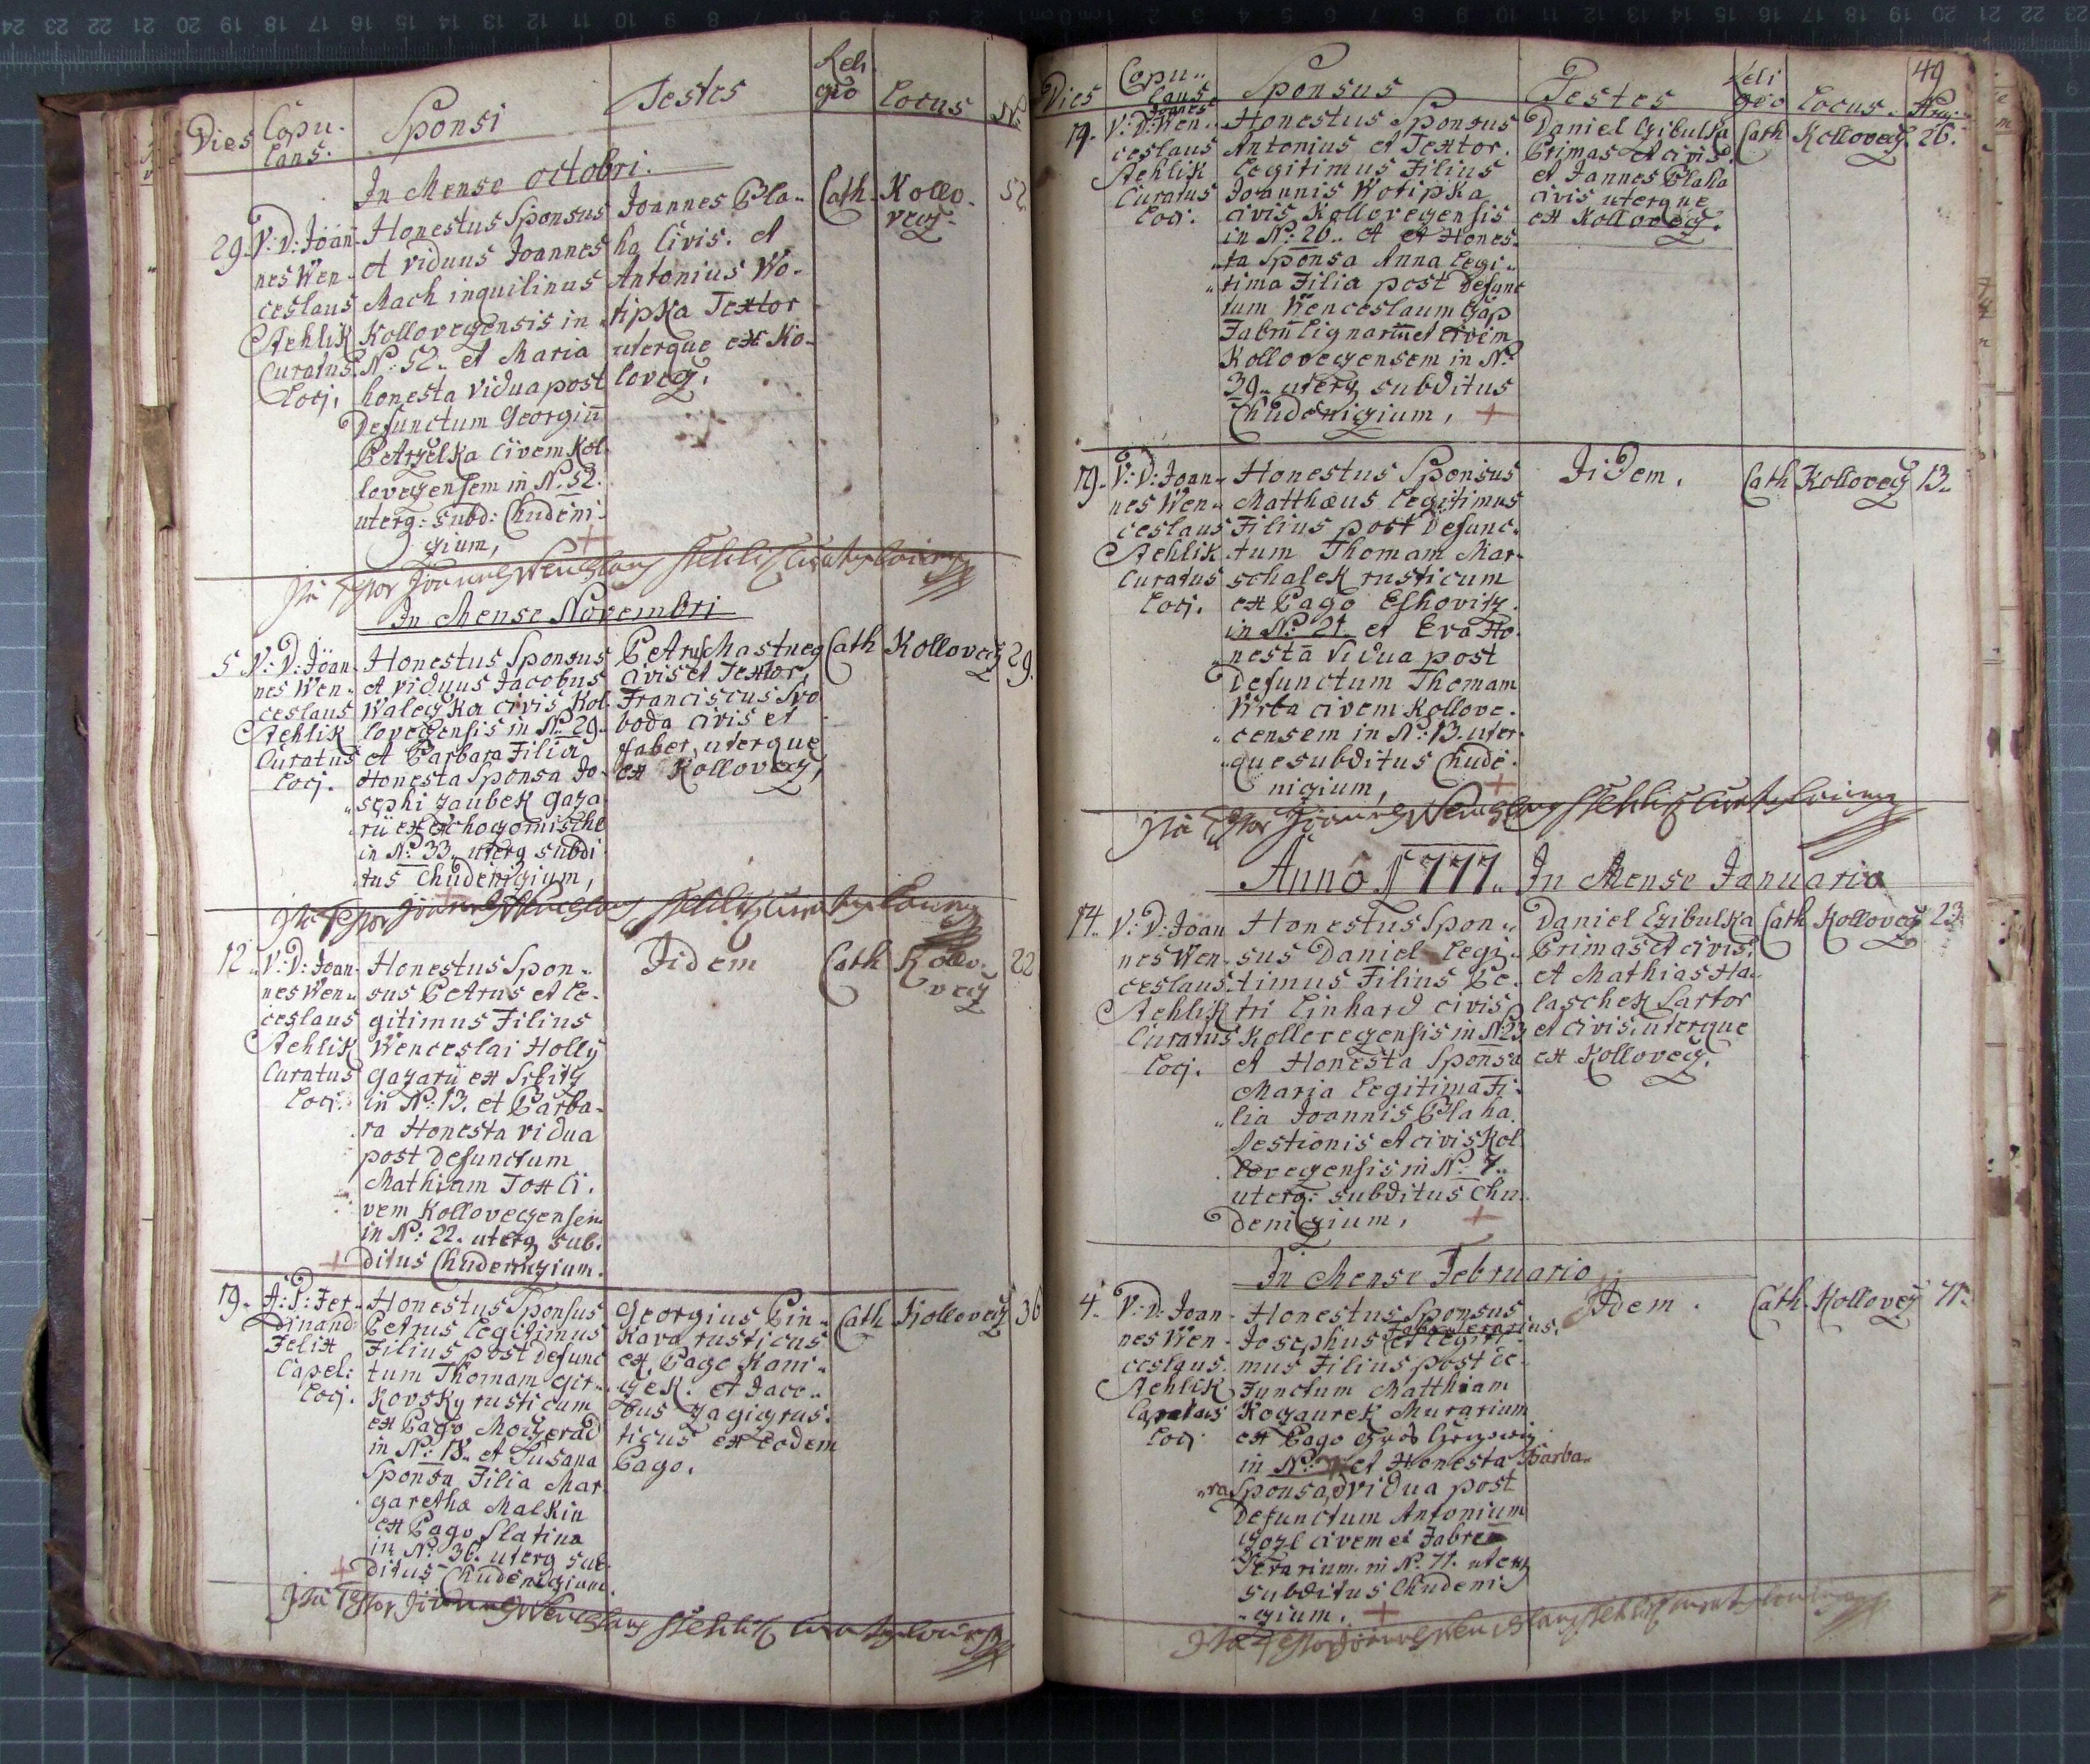 Dies
Copu-
lans.
Sponsi
Testes
Reli
gio
Locus
Nr.
In Mense octobri.
29.
V: D: Joan-
nes Wen-
ceslaus
Stehlik
Curatus
Locj.
Honestus Sponsus
et viduus Joannes
Mach inquilinus
Kollovegensis in
N: 52. et Maria
honesta vidua post
Defunctum Georgiu
Petrzelka Civem Kol
lovegensem in N. 52.
uterq: subd: Chudeni-
zium,
Joannes Bla-
ha Civis. et
Antonius Wo-
tipka Textor
uterque ex Ko-
lovecz.
Cath
Kollo-
vecz
52
Joannes Wenceslaus Stehlik Curatus
In Mense Novembri
5
V: D: Joan-
nes Wen-
ceslaus
Stehlik
Curatus
Locj.
Honestus Sponsus
et viduus Jacobus
civis Kol-
lovegensis in N: 29.
et Barbara Filia
Honesta Sponsa Jo-
sephi zaubek gaza
in N: 33. uterq subdi
tus Chudenizium,
Petrus Mastney
civis et Textor,
Franciscus Svo
boda civis et
faber, uterque
ex Kollovecz,
Cath
Kollovecz
29.
Joannes Wenceslaus Stehlik Curatus
12
V: D: Joan-
nes Wen-
ceslaus
Stehlik
Curatus
Locj.
Honestus Spon-
sus Petrus et le-
gitimus Filius
Wenceslai Holly
gazarii ex Srbitz
in N: 13. et Barba-
ra Honesta vidua
post defunctum
Mathiam Tox Ci.
vem Kollovegensem
in N: 22. uterq sub.
ditus Chudenizium.
Iidem
Cath
Kollo-
vecz
22
19.
A: P: Fer-
dinand
Felix
Capel:
Locj.
Honestus Sponsus
Petrus Legitimus
Filius post defunc
tum Thomam
kovsky rusticum
ex Pago
in N: 18. et Susana
Sponsa Filia Mar
garethæ Malkin
ex Pago Slatina
in N: 36. uterq sub-
ditus Chudenizium.
Georgius Pin-
kava rusticus
ex Pago Kani-
czek. et Jaco-
bus rus.
ticus ex eodem
Pago.
Cath
Kollovecz
36
Joannes Wenceslaus Stehlik Curatus
49
Dies
Copu-
lans
Sponsus
Testes
Reli
gio
Locus.
19.
Joanes
V: D: Wen-
ceslaus
Stehlik
Curatus
Locj.
Honestus Sponsus
Antonius et Textor.
Legitimus Filius
Joannis Wotipka
civis Kollovegensis
in N: 26. et et Hones-
ta Sponsa Anna Legi-
tima Filia post Defunc
tum Wenceslaum
Kollovegensem in N:
39. uterq subditus
Chudenizium,
Daniel Czibulka
Primas et civis
et Jannes Blaha
civis uterque
ex Kollovecz.
Cath
Kollovecz
26.
19.
V: D: Joan-
nes Wen-
ceslaus
Stehlik
Curatus
Locj.
Honestus Sponsus
Matthæus Legitimus
Filius post Defunc-
tum Thomam Mar-
schalek rusticum
ex Pago
in N: 21. et Eva Ho-
nesta vidua post
Defunctum Thomam
Wrba civem Kollove-
censem in N: 13. uter-
que subditus Chude-
nizium,
Iidem.
Cath
Kollovecz
13.
Joannes Wenceslaus Stehlik Curatus
Anno 1777. In Mense Januario
14.
V: D: Joan
nes Wen-
ceslaus
Stehlik
Curatus
Locj.
Honestus Spon-
sus Daniel Legi-
timus Filius Pe-
tri Linhard civis
Kollovegensis in N: 23
et Honesta Sponsa
Maria Legitima Fi-
lia Joannis Blaha
Testionis et civis Kol
lovegensis in N: 7.
uterq: subditus Chu-
denizium,
Daniel Czibulka
Primas et civis.
et Mathias Ha-
laschek Sartor
et civis, uterque
ex Kollovecz.
Cath
Kollovecz
23
In Mense Februario
4.
V: D: Joan-
nes Wen-
ceslaus
Stehlik
Locj
Honestus Sponsus
Josephus et Legiti-
mus Filius post de-
functum Matthiam
Kozaurek Murarium
ex Pago
in N: et Honesta Barba-
ra Sponsa, vidua post
Defunctum Antonium
civem et Fabrum
Ferarium in N: 71. uterq
subditus Chudeni-
zium.
Idem.
Cath
Kollovecz
71.